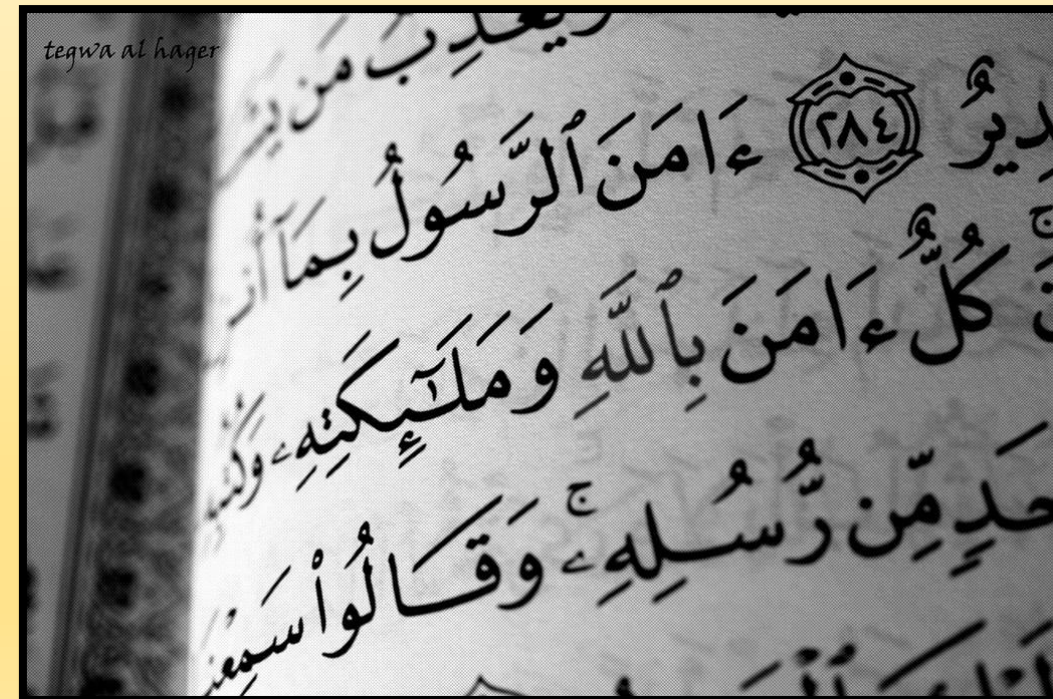 tegwa al hager
وَيُعَذِّبُ مَن
دِيرٌ ٢٨٤ ءَامَنَ ٱلرَّسُولُ بِمَآ
كُلٌّ ءَامَنَ بِٱللَّهِ وَمَلَـٰٓئِكَتِهِۦ
حَدٍ مِّن رُّسُلِهِۦ ۚ وَقَالُوا۟